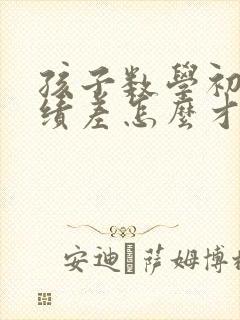 孩子数學初
績差怎麼才
安迪 萨姆博